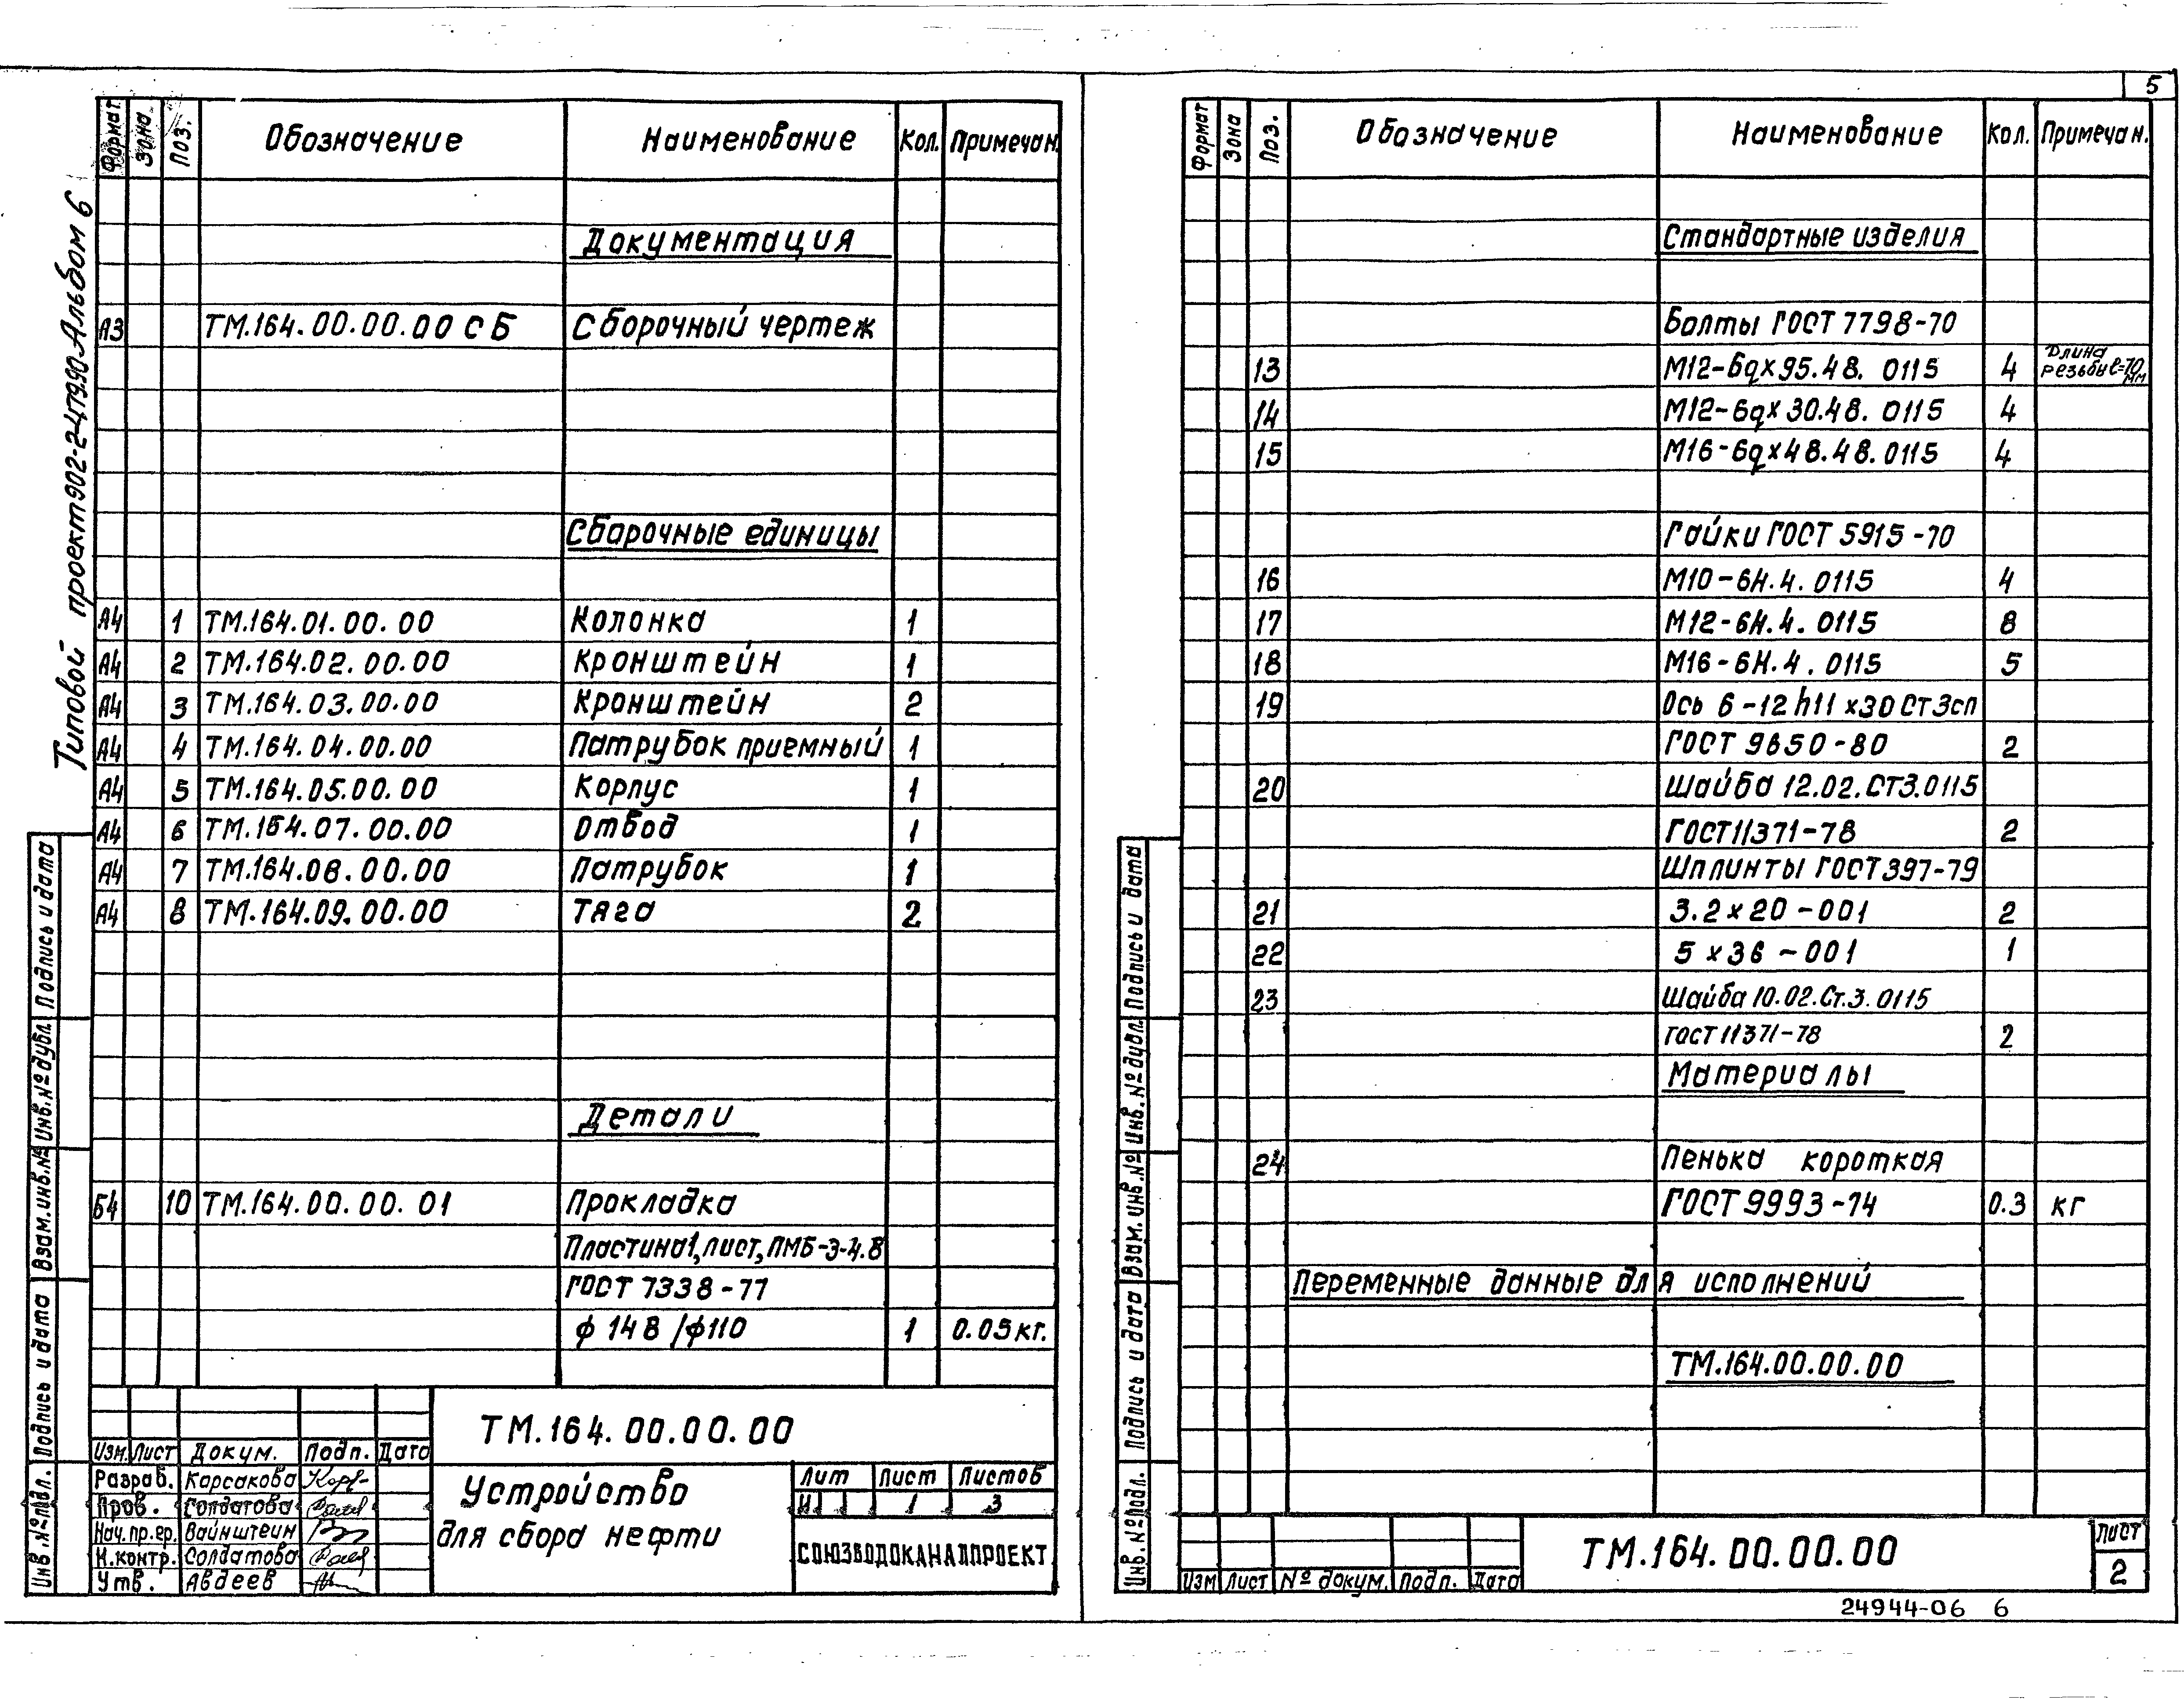 5
Типовой проект 902-2-479.90 Альбом 6
Формат Зона Поз. Обозначение Наименование Кол. Примечан.
Документация
А3 ТМ.164.00.00.00 СБ Сборочный чертеж
Сборочные единицы
А4 1 ТМ.164.01.00.00 Колонка 1
А4 2 ТМ.164.02.00.00 Кронштейн 1
А4 3 ТМ.164.03.00.00 Кронштейн 2
А4 4 ТМ.164.04.00.00 Патрубок приемный 1
А4 5 ТМ.164.05.00.00 Корпус 1
А4 6 ТМ.164.07.00.00 Отвод 1
А4 7 ТМ.164.08.00.00 Патрубок 1
А4 8 ТМ.164.09.00.00 Тяга 2
Детали
Б4 10 ТМ.164.00.00.01 Прокладка
Пластина 1, лист, ПМБ-Э-4.8
ГОСТ 7338-77
ф 148 /ф110 1 0.05 кг.
Инв.№ подл. Подпись и дата Взам.инв.№ Инв.№ дубл. Подпись и дата
Изм. Лист Докум. Подп. Дата
Разраб. Карсакова
Пров. Солдатова
Нач.пр.гр. Вайнштеин
Н.контр. Солдатова
Утв. Авдеев
ТМ.164.00.00.00
Устройство
для сбора нефти
Лит Лист Листов
И 1 3
СОЮЗВОДОКАНАЛПРОЕКТ
Формат Зона Поз. Обозначение Наименование Кол. Примечан.
Стандартные изделия
Болты ГОСТ 7798-70
13 М12-6qх95.48. 0115 4 Длина резьбы ℓ=70 мм
14 М12-6qх30.48. 0115 4
15 М16-6qх48.48.0115 4
Гайки ГОСТ 5915-70
16 М10-6Н.4. 0115 4
17 М12-6Н.4. 0115 8
18 М16-6Н.4. 0115 5
19 Ось 6-12 h11 х30 Ст3сп
ГОСТ 9650-80 2
20 Шайба 12.02.СТ3.0115
ГОСТ 11371-78 2
Шплинты ГОСТ 397-79
21 3.2 х 20 - 001 2
22 5 х 36 - 001 1
23 Шайба 10.02.Ст.3. 0115
гост 11371-78 2
Материалы
24 Пенька короткая
ГОСТ 9993-74 0.3 кг
Переменные данные для исполнений
ТМ.164.00.00.00
Инв.№ подл. Подпись и дата Взам.инв.№ Инв.№ дубл. Подпись и дата
Изм Лист № докум. Подп. Дата
ТМ.164.00.00.00
Лист
2
24944-06 6